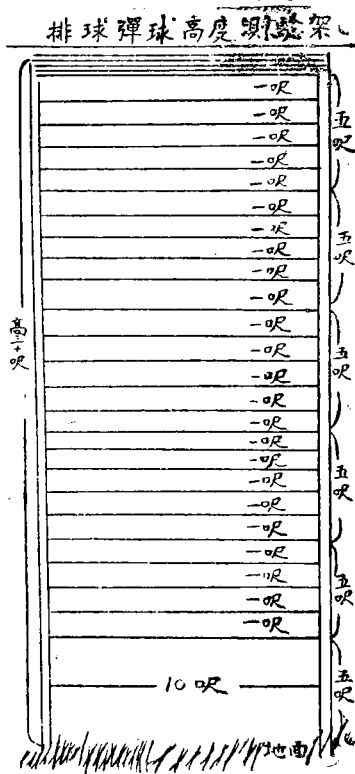 排球彈球高度測驗架
一呎
一呎
一呎
一呎
一呎
一呎
一呎
一呎
一呎
一呎
一呎
一呎
一呎
一呎
一呎
一呎
一呎
一呎
一呎
一呎
一呎
一呎
一呎
一呎
五呎
五呎
五呎
五呎
五呎
五呎
高三十呎
10呎
地面